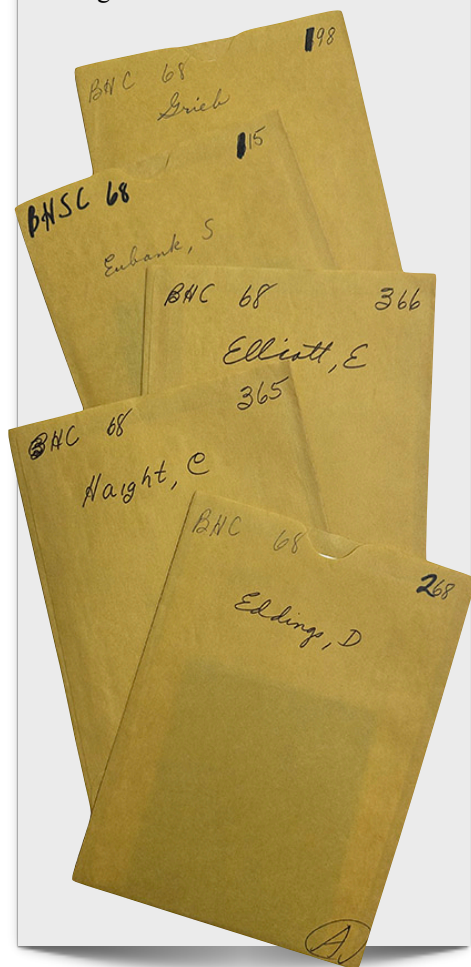 BHC 68 198
Grieb
BHSC 68 115
Eubank, S
BHC 68 366
Elliott, E
BHC 68 365
Haight, C
BHC 68 268
Eddings, D
A